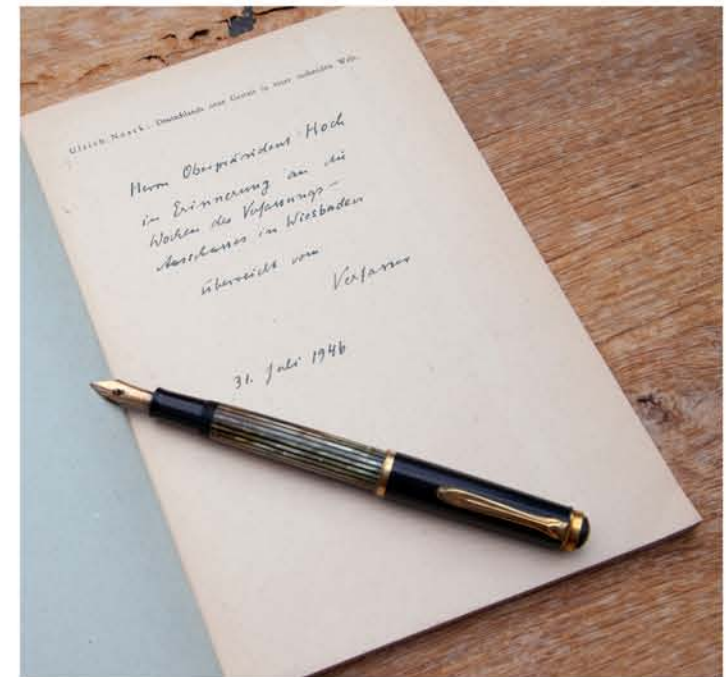 Ulrich Noack: Deutschlands neue Geltung in einer
Herrn Oberpräsident Hoch
in Erinnerung an die
Wochen des Verfassungs-
Ausschusses in Wiesbaden
überreicht vom
Verfasser
31. Juli 1946